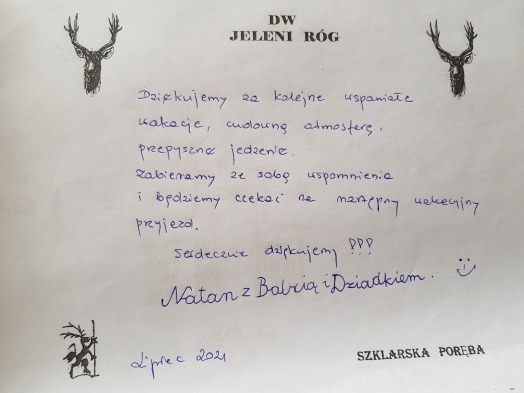 DW
JELENI RÓG
Dziękujemy za kolejne wspaniałe
wakacje, cudowną atmosferę,
przepyszne jedzenie.
Zabieramy ze sobą wspomnienia
i będziemy czekać na następny wakacyjny
przyjazd.
Serdecznie dziękujemy !!!
Natan z Babcią i Dziadkiem.
Lipiec 2021
SZKLARSKA PORĘBA